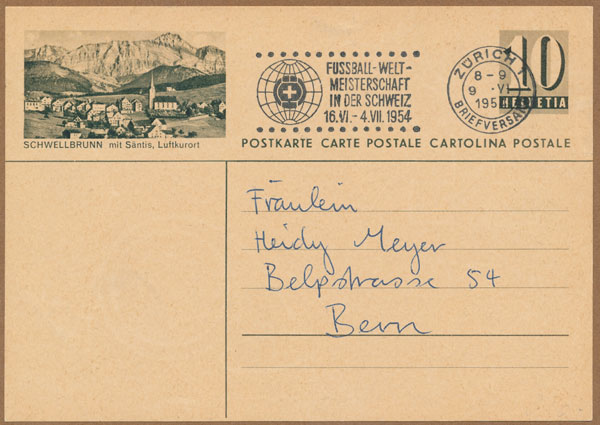 SCHWELLBRUNN mit Säntis, Luftkurort
FUSSBALL-WELT-
MEISTERSCHAFT
IN DER SCHWEIZ
16.VI.-4.VII.1954
ZÜRICH 1
8-9
9 .VI
195
BRIEFVERSAND
10
HELVETIA
POSTKARTE CARTE POSTALE CARTOLINA POSTALE
Fräulein
Heidy Meyer
Belpstrasse 54
Bern